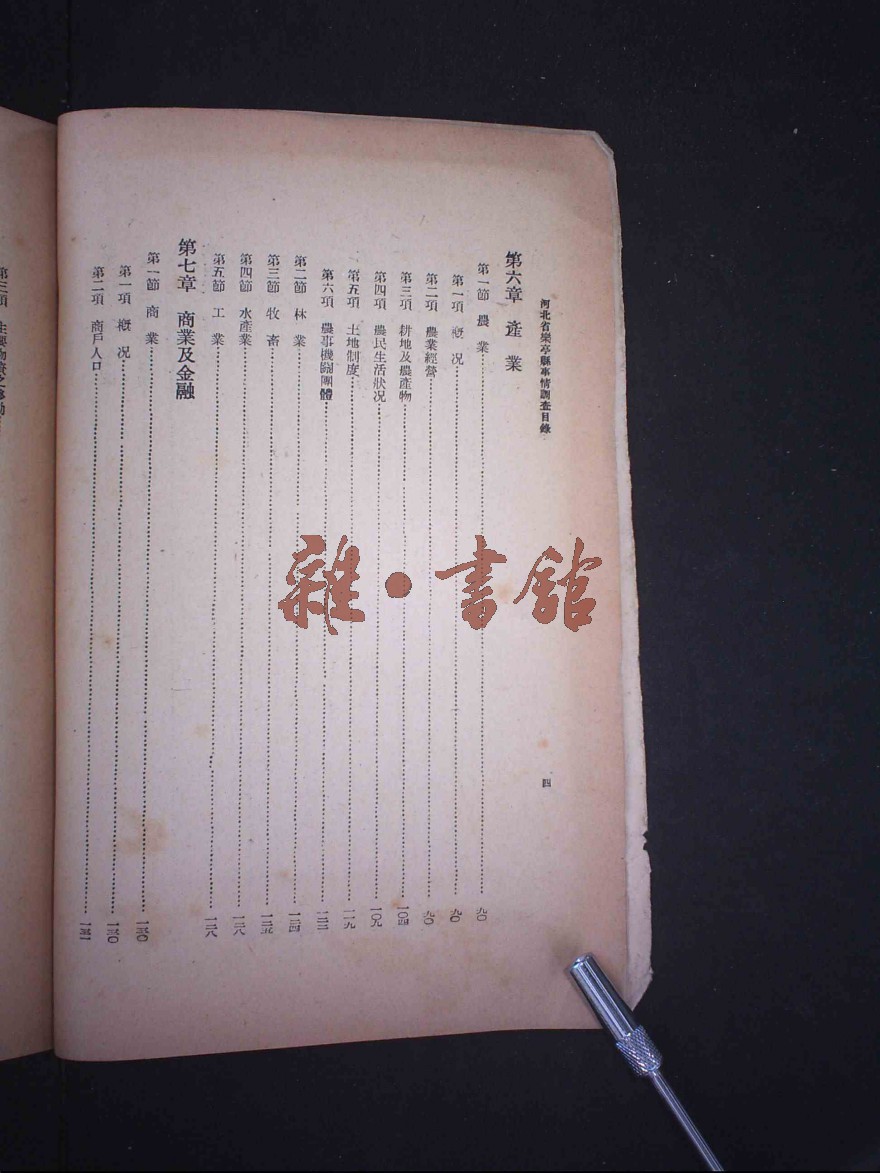 河北省樂亭縣事情調查目錄 四
第六章 產業
第一節 農業 九〇
第一項 概况 九〇
第二項 農業經營 九〇
第三項 耕地及農產物 一〇四
第四項 農民生活狀况 一〇九
第五項 土地制度 一一九
第六項 農事機關團體
第二節 林業 一二四
第三節 牧畜 一二五
第四節 水產業 一二八
第五節 工業 一二八
第七章 商業及金融
第一節 商業 一三〇
第一項 概况 一三〇
第二項 商戶人口 一三一
第三項
雜·書館